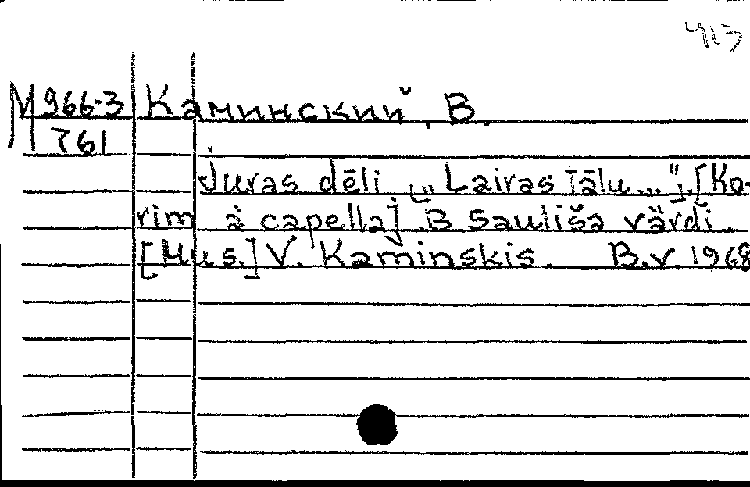 413
М 966-3 Каминский, В.
761
Juras dēli [„Lairas tālu..."]. [Ko-
rim a capella]. B Sauliša vārdi.
[Mus.] V. Kaminskis. B.v. 1968